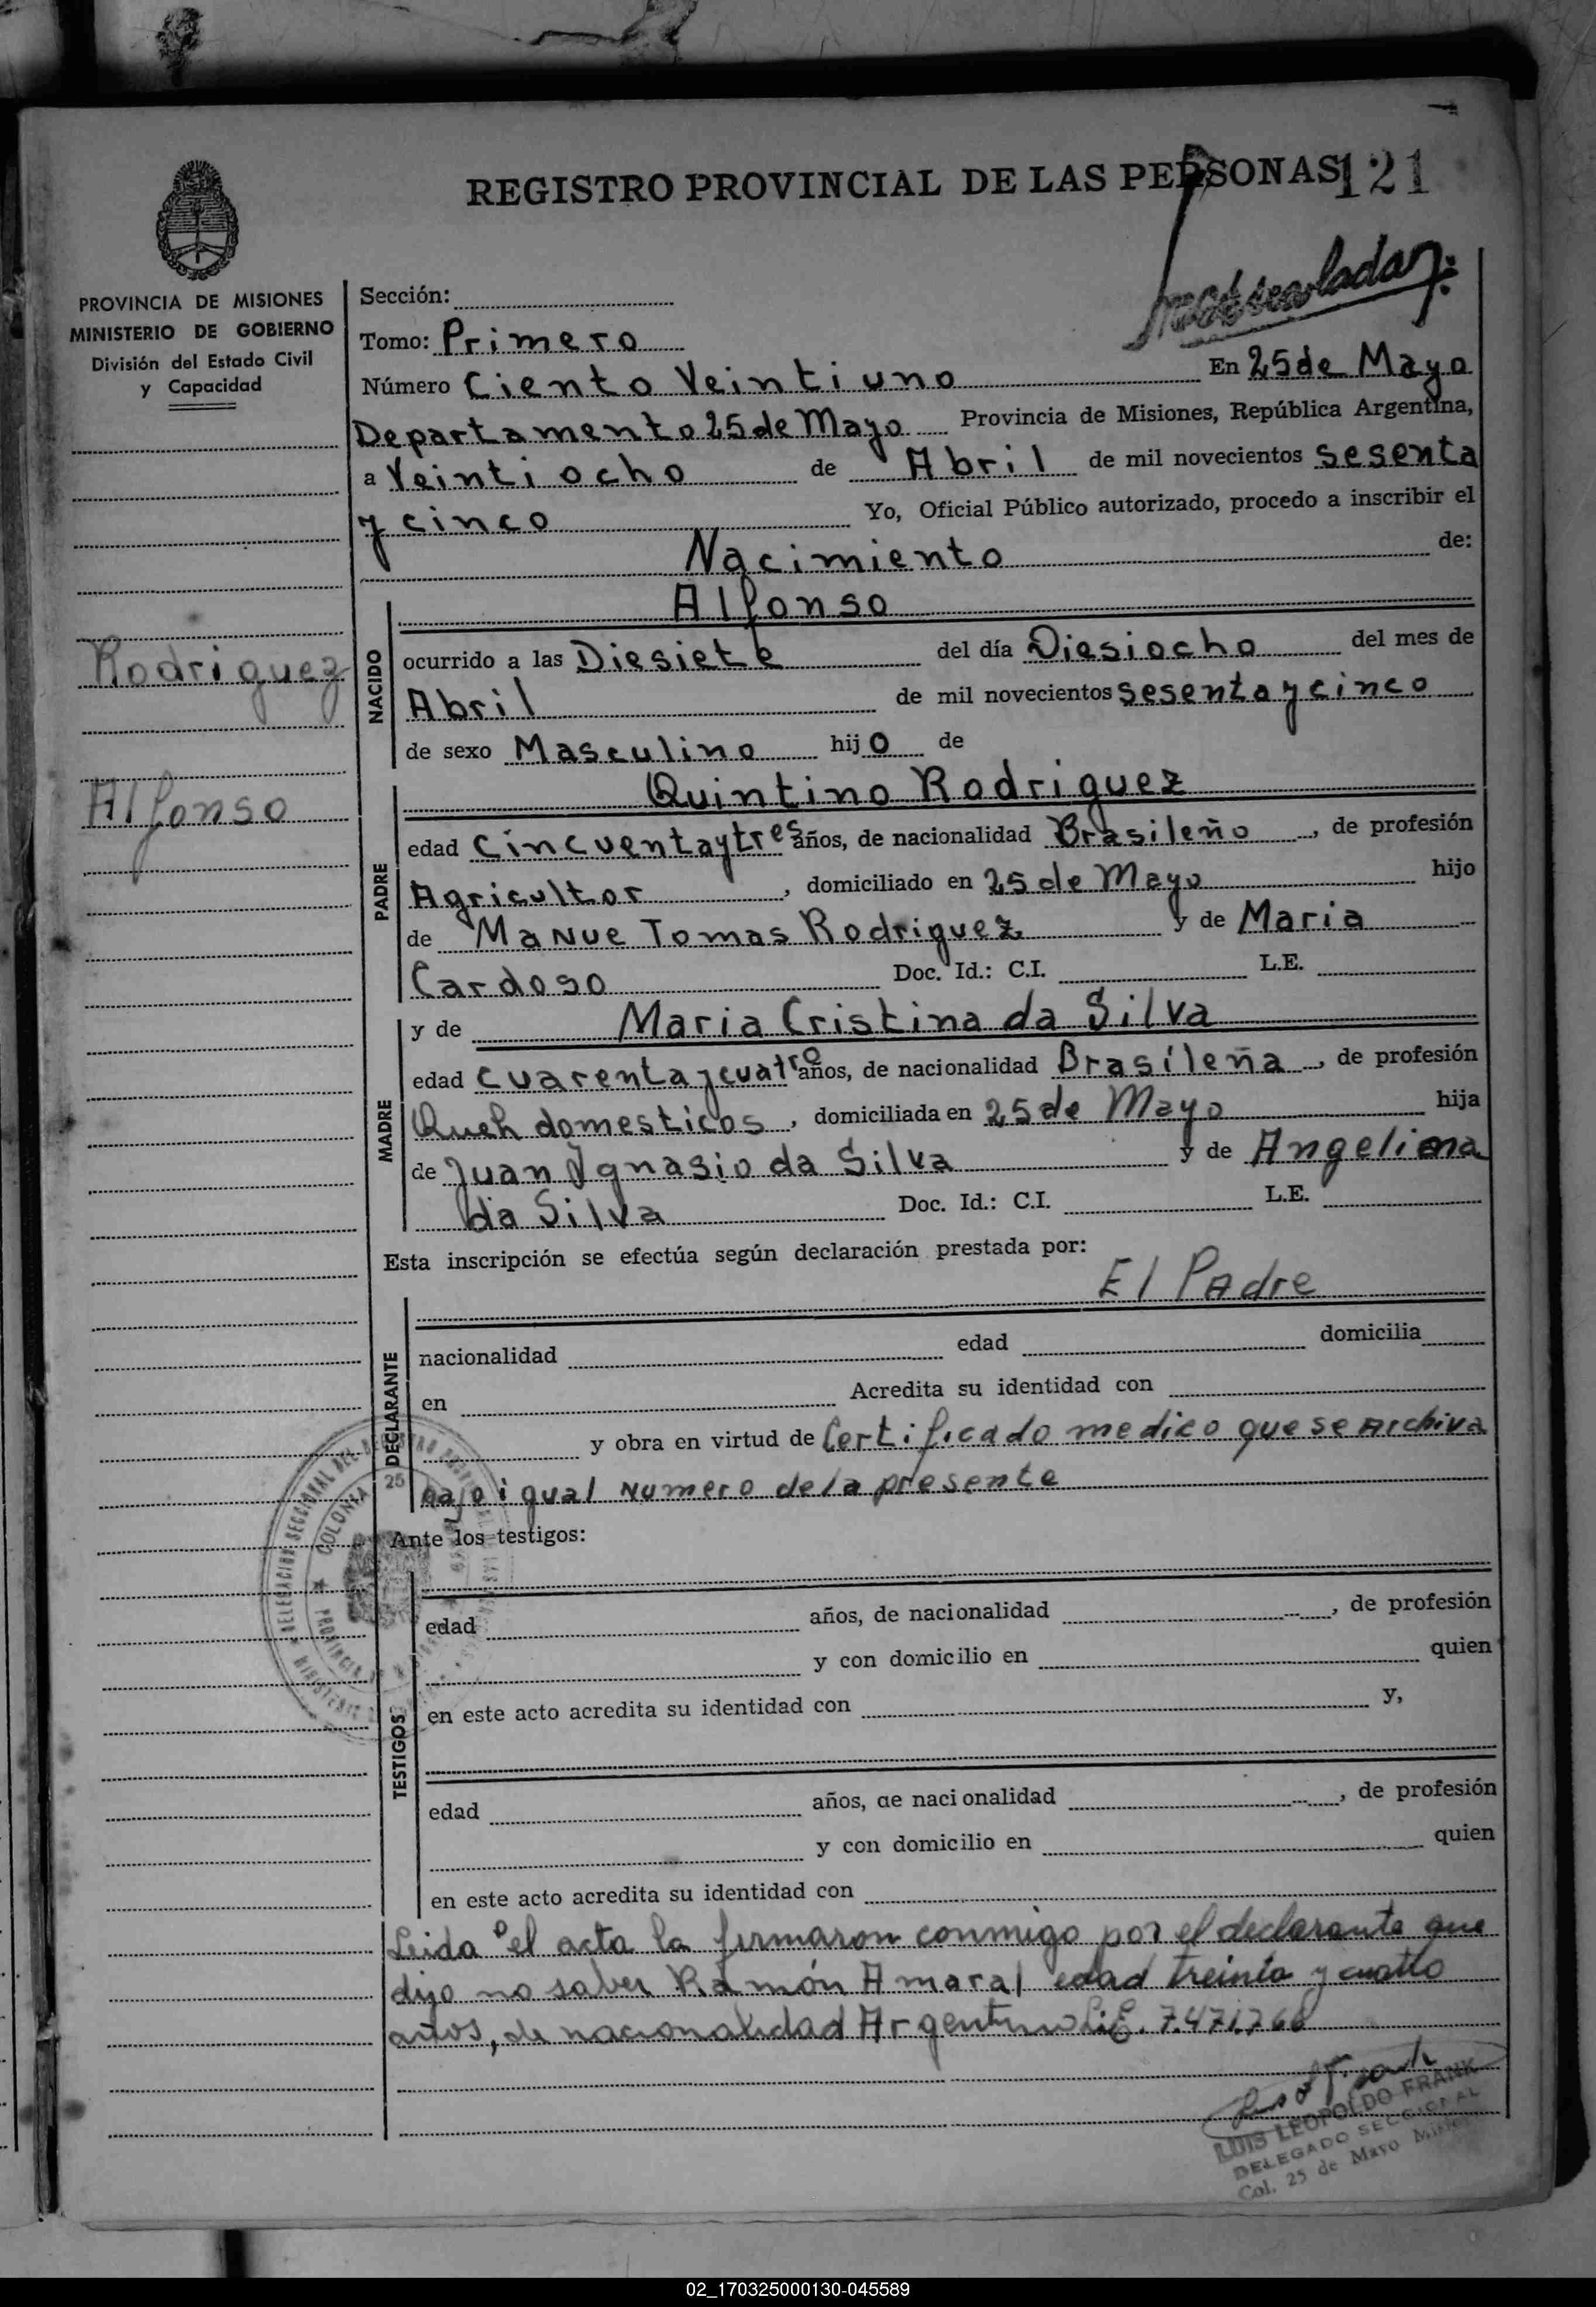 REGISTRO PROVINCIAL DE LAS PERSONAS 121
PROVINCIA DE MISIONES
MINISTERIO DE GOBIERNO
División del Estado Civil
y Capacidad
Rodriguez
Alfonso
Sección:
Tomo: Primero
Número Ciento Veintiuno En 25 de Mayo
Departamento 25 de Mayo Provincia de Misiones, República Argentina,
a Veintiocho de Abril de mil novecientos sesenta
y cinco Yo, Oficial Público autorizado, procedo a inscribir el
Nacimiento de:
NACIDO
Alfonso
ocurrido a las Diesiete del día Diesiocho del mes de
Abril de mil novecientos sesenta y cinco
de sexo Masculino hijo de
PADRE
Quintino Rodriguez
edad Cincuenta y tres años, de nacionalidad Brasileño, de profesión
Agricultor, domiciliado en 25 de Mayo hijo
de Manue Tomas Rodriguez y de Maria
Cardoso Doc. Id.: C.I. L.E.
MADRE
y de Maria Cristina da Silva
edad cuarenta y cuatro años, de nacionalidad Brasileña, de profesión
Queh domesticos, domiciliada en 25 de Mayo hija
de Juan Ygnasio da Silva y de Angelina
da Silva Doc. Id.: C.I. L.E.
Esta inscripción se efectúa según declaración prestada por:
El Padre
DECLARANTE
nacionalidad edad domicilia
en Acredita su identidad con
y obra en virtud de Certificado medico que se Archiva
bajo igual numero de la presente
Ante los testigos:
TESTIGOS
edad años, de nacionalidad , de profesión
y con domicilio en quien
en este acto acredita su identidad con y,
edad años, de nacionalidad , de profesión
y con domicilio en quien
en este acto acredita su identidad con
Leida el acta la firmaron conmigo por el declarante que
dijo no saber Ramón Amaral edad treinta y cuatro
años, de nacionalidad Argentino L.E. 7.471.768
LUIS LEOPOLDO FRANK
DELEGADO SECCIONAL
Col. 25 de Mayo
02_170325000130-045589